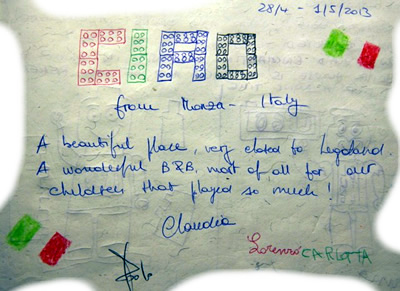 28/4 - 1/5/2013
CIAO
from Monza - Italy
A beautiful place, very closed to Legoland.
A wonderful B&B, most of all for our
children that played so much!
Claudia
Lorenzo CARLOTTA